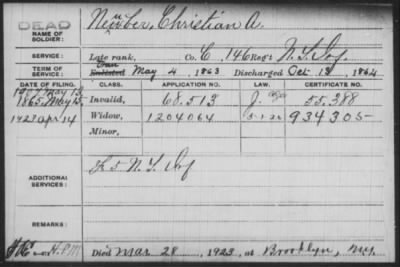 DEAD
NAME OF SOLDIER: Neuber, Christian A.
SERVICE: Late rank, Co. C, 146 Reg't N.Y. Inf.
TERM OF SERVICE: Enlisted May 4, 1863 Discharged Oct 13, 1864
DATE OF FILING. CLASS. APPLICATION NO. LAW. CERTIFICATE NO.
1865, May 15. Invalid, 68.513 55.388
1923 Apr 14 Widow, 1204064 5-1-20 934305
Minor,
ADDITIONAL SERVICES: 5 N.Y. Inf
REMARKS:
Died Mar 28, 1923, at Brooklyn, N.Y.